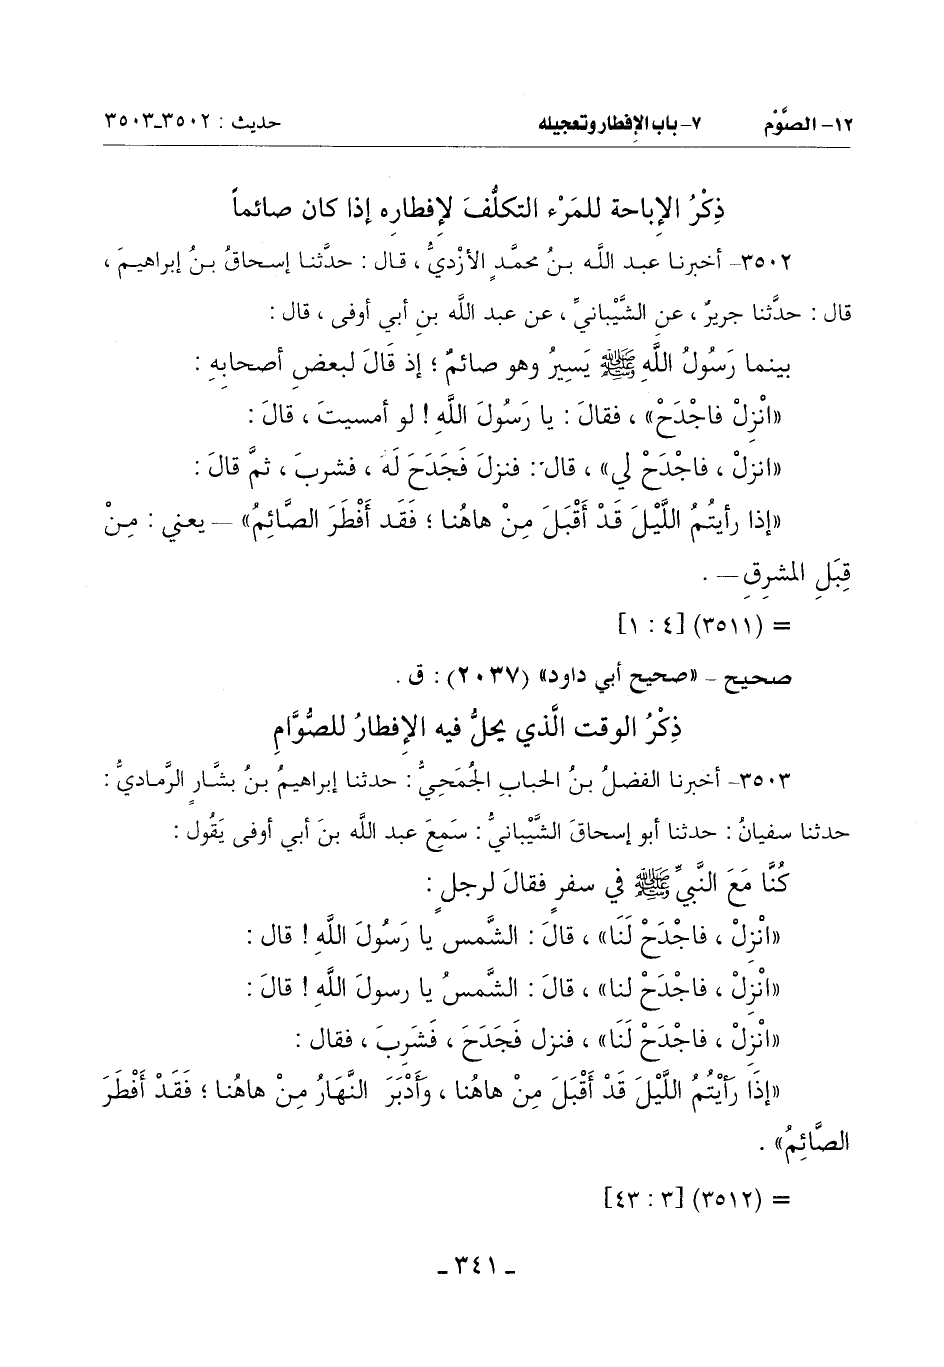 ١٢- الصَّوْم ٧- باب الإفطار وتعجيله حديث : ٣٥٠٢-٣٥٠٣
ذِكْرُ الإباحة للمَرْءِ التكلُّفَ لإفطارِه إذا كان صائماً
٣٥٠٢- أخبرنا عبد اللَّه بنُ محمَّدٍ الأزْديُّ ، قال : حدَّثنا إسحاقُ بنُ إبراهيمَ ،
قال : حدَّثنا جريرٌ ، عنِ الشَّيْبانيِّ ، عن عبد اللَّه بنِ أبي أوفى ، قال :
بينما رَسُولُ اللَّهِ ﷺ يَسِيرُ وهو صائمٌ ؛ إذ قَالَ لبعضِ أصحابِهِ :
«انْزِلْ فاجْدَحْ» ، فقالَ : يا رَسُولَ اللَّهِ ! لو أمسيتَ ، قالَ :
«انزِلْ ، فاجْدَحْ لي» ، قال : فنزلَ فَجَدَحَ لَهُ ، فشربَ ، ثمَّ قالَ :
«إذا رأيتُمُ اللَّيْلَ قَدْ أَقْبَلَ مِنْ هاهُنا ؛ فَقَد أَفْطَرَ الصَّائِمُ» — يعني : مِنْ
قِبَلِ المشرِقِ — .
= (٣٥١١) [٤ : ١]
صحيح - «صحيح أبي داود» (٢٠٣٧) : ق .
ذِكْرُ الوقت الَّذي يحلُّ فيه الإفطارُ للصُّوَّامِ
٣٥٠٣- أخبرنا الفضلُ بنُ الحبابِ الجُمَحِيُّ : حدثنا إبراهيمُ بنُ بشَّارٍ الرَّماديُّ :
حدثنا سفيانُ : حدثنا أبو إسحاقَ الشَّيْبانيُّ : سَمِعَ عبد اللَّه بنَ أبي أوفى يَقُول :
كُنَّا مَعَ النَّبيِّ ﷺ في سفرٍ فقالَ لرجلٍ :
«انْزِلْ ، فاجْدَحْ لَنَا» ، قالَ : الشَّمس يا رَسُولَ اللَّهِ ! قال :
«انْزِلْ ، فاجْدَحْ لنا» ، قالَ : الشَّمسُ يا رسولَ اللَّهِ ! قالَ :
«انْزِلْ ، فاجْدَحْ لَنَا» ، فنزل فَجَدَحَ ، فَشَرِبَ ، فقال :
«إذَا رَأَيْتُمُ اللَّيْلَ قَدْ أَقْبَلَ مِنْ هاهُنا ، وَأَدْبَرَ النَّهَارُ مِنْ هاهُنا ؛ فَقَدْ أَفْطَرَ
الصَّائِمُ» .
= (٣٥١٢) [٣ : ٤٣]
- ٣٤١ -